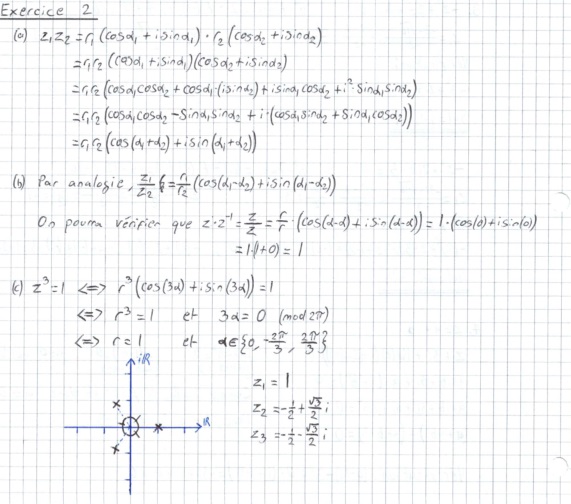 Exercice 2
(a) z₁z₂ = r₁(cosα₁ + isinα₁) · r₂(cosα₂ + isinα₂)
= r₁r₂(cosα₁ + isinα₁)(cosα₂ + isinα₂)
= r₁r₂(cosα₁cosα₂ + cosα₁·(isinα₂) + isinα₁cosα₂ + i²·sinα₁sinα₂)
= r₁r₂(cosα₁cosα₂ - sinα₁sinα₂ + i·(cosα₁sinα₂ + sinα₁cosα₂))
= r₁r₂(cos(α₁+α₂) + isin(α₁+α₂))
(b) Par analogie, z₁/z₂ = r₁/r₂ (cos(α₁-α₂) + isin(α₁-α₂))
On pourra vérifier que z·z⁻¹ = z/z = r/r · (cos(α-α) + isin(α-α)) = 1·(cos(0) + isin(0))
= 1·(1+0) = 1
(c) z³ = 1 <=> r³(cos(3α) + isin(3α)) = 1
<=> r³ = 1 et 3α = 0 (mod 2π)
<=> r = 1 et α ∈ {0, -2π/3, 2π/3}
iR
R
z₁ = 1
z₂ = -1/2 + √3/2 i
z₃ = -1/2 - √3/2 i